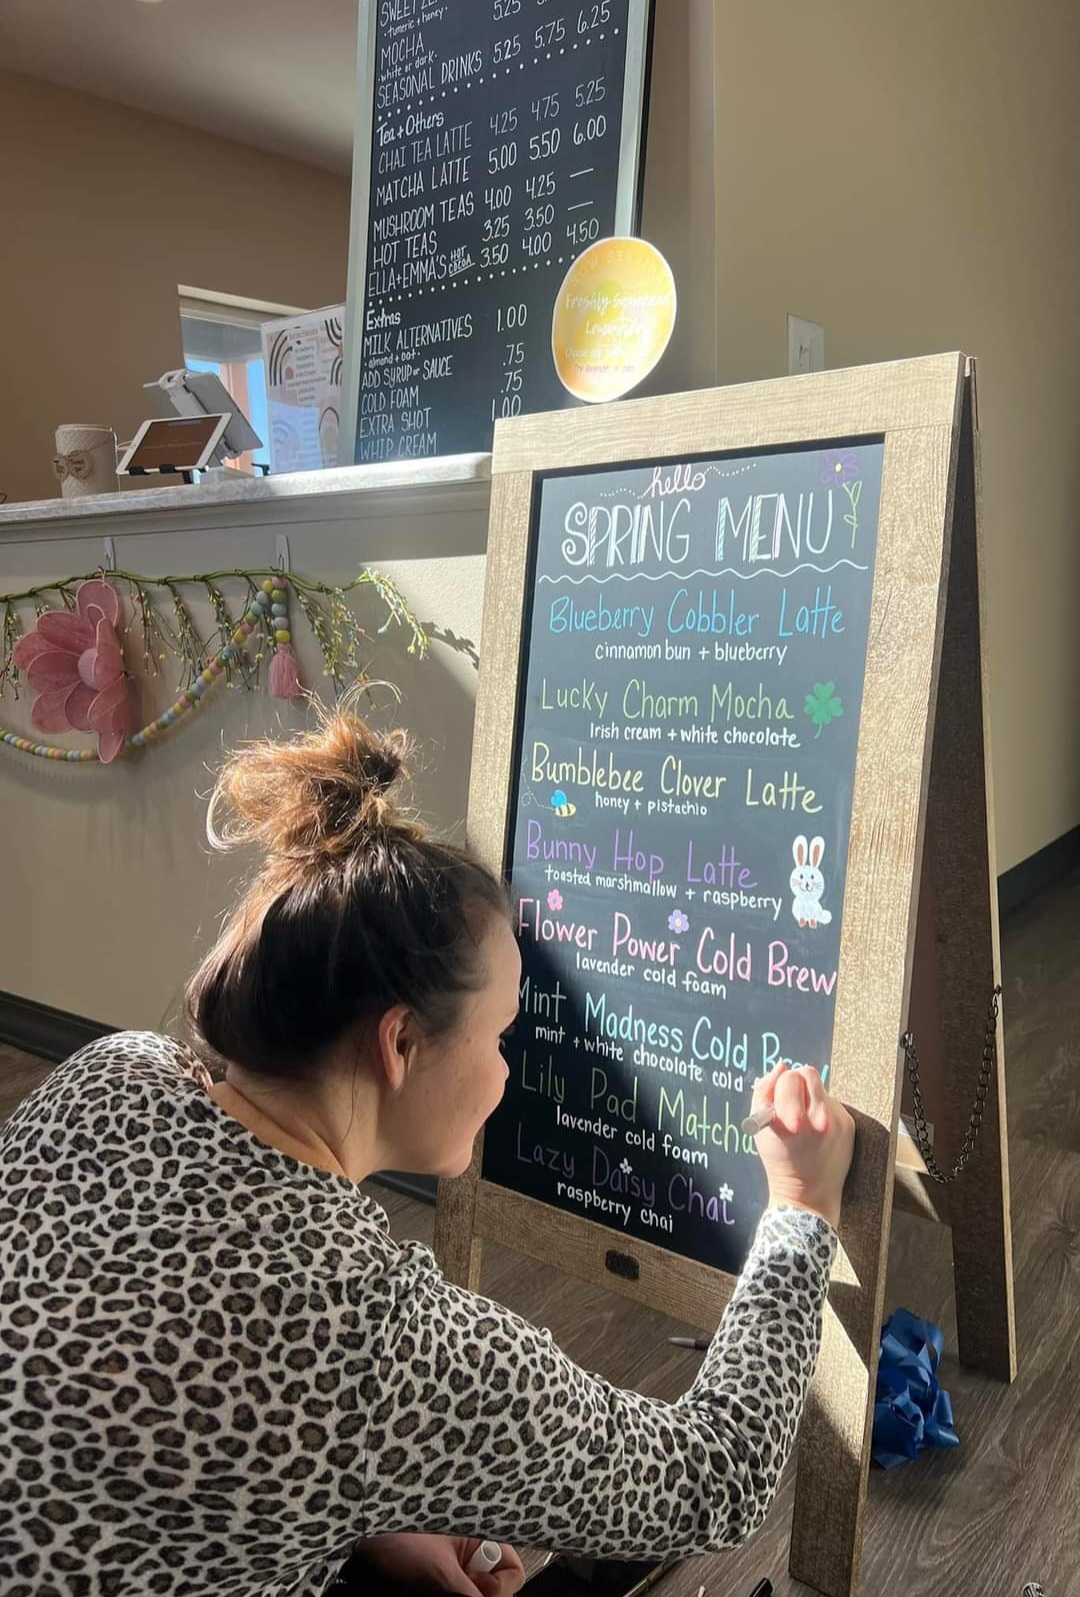 5.25
turmeric + honey
MOCHA
white or dark
5.25 5.75 6.25
SEASONAL DRINKS
Tea + Others
CHAI TEA LATTE 4.25 4.75 5.25
MATCHA LATTE 5.00 5.50 6.00
MUSHROOM TEAS 4.00 4.25 —
HOT TEAS 3.25 3.50 —
ELLA+EMMA'S HOT COCOA 3.50 4.00 4.50
Extras
MILK ALTERNATIVES 1.00
almond + oat
ADD SYRUP or SAUCE .75
COLD FOAM .75
EXTRA SHOT 1.00
WHIP CREAM
NOW SERVING
Freshly Squeezed
hello
SPRING MENU
Blueberry Cobbler Latte
cinnamon bun + blueberry
Lucky Charm Mocha
Irish cream + white chocolate
Bumblebee Clover Latte
honey + pistachio
Bunny Hop Latte
toasted marshmallow + raspberry
Flower Power Cold Brew
lavender cold foam
Mint Madness Cold Brew
mint + white chocolate cold
Lily Pad Matcha
lavender cold foam
Lazy Daisy Chai
raspberry chai